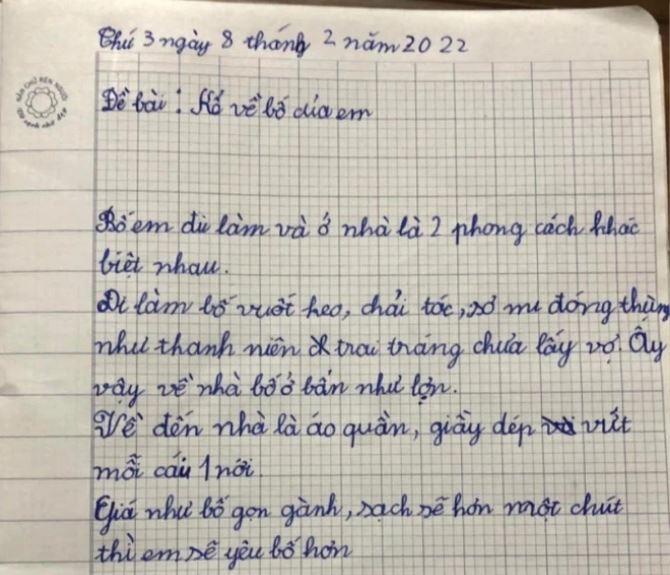 Thứ 3 ngày 8 tháng 2 năm 2022
NẮN CHỮ RÈN NGƯỜI
Đề bài : Kể về bố của em
Bố em đi làm và ở nhà là 2 phong cách khác
biệt nhau.
Đi làm bố vuốt keo, chải tóc, sơ mi đóng thùng
như thanh niên trai tráng chưa lấy vợ. Ấy
vậy về nhà bố ở bẩn như lợn.
Về đến nhà là áo quần, giầy dép vứt
mỗi cái 1 nơi.
Giá như bố gọn gành, sạch sẽ hơn một chút
thì em sẽ yêu bố hơn